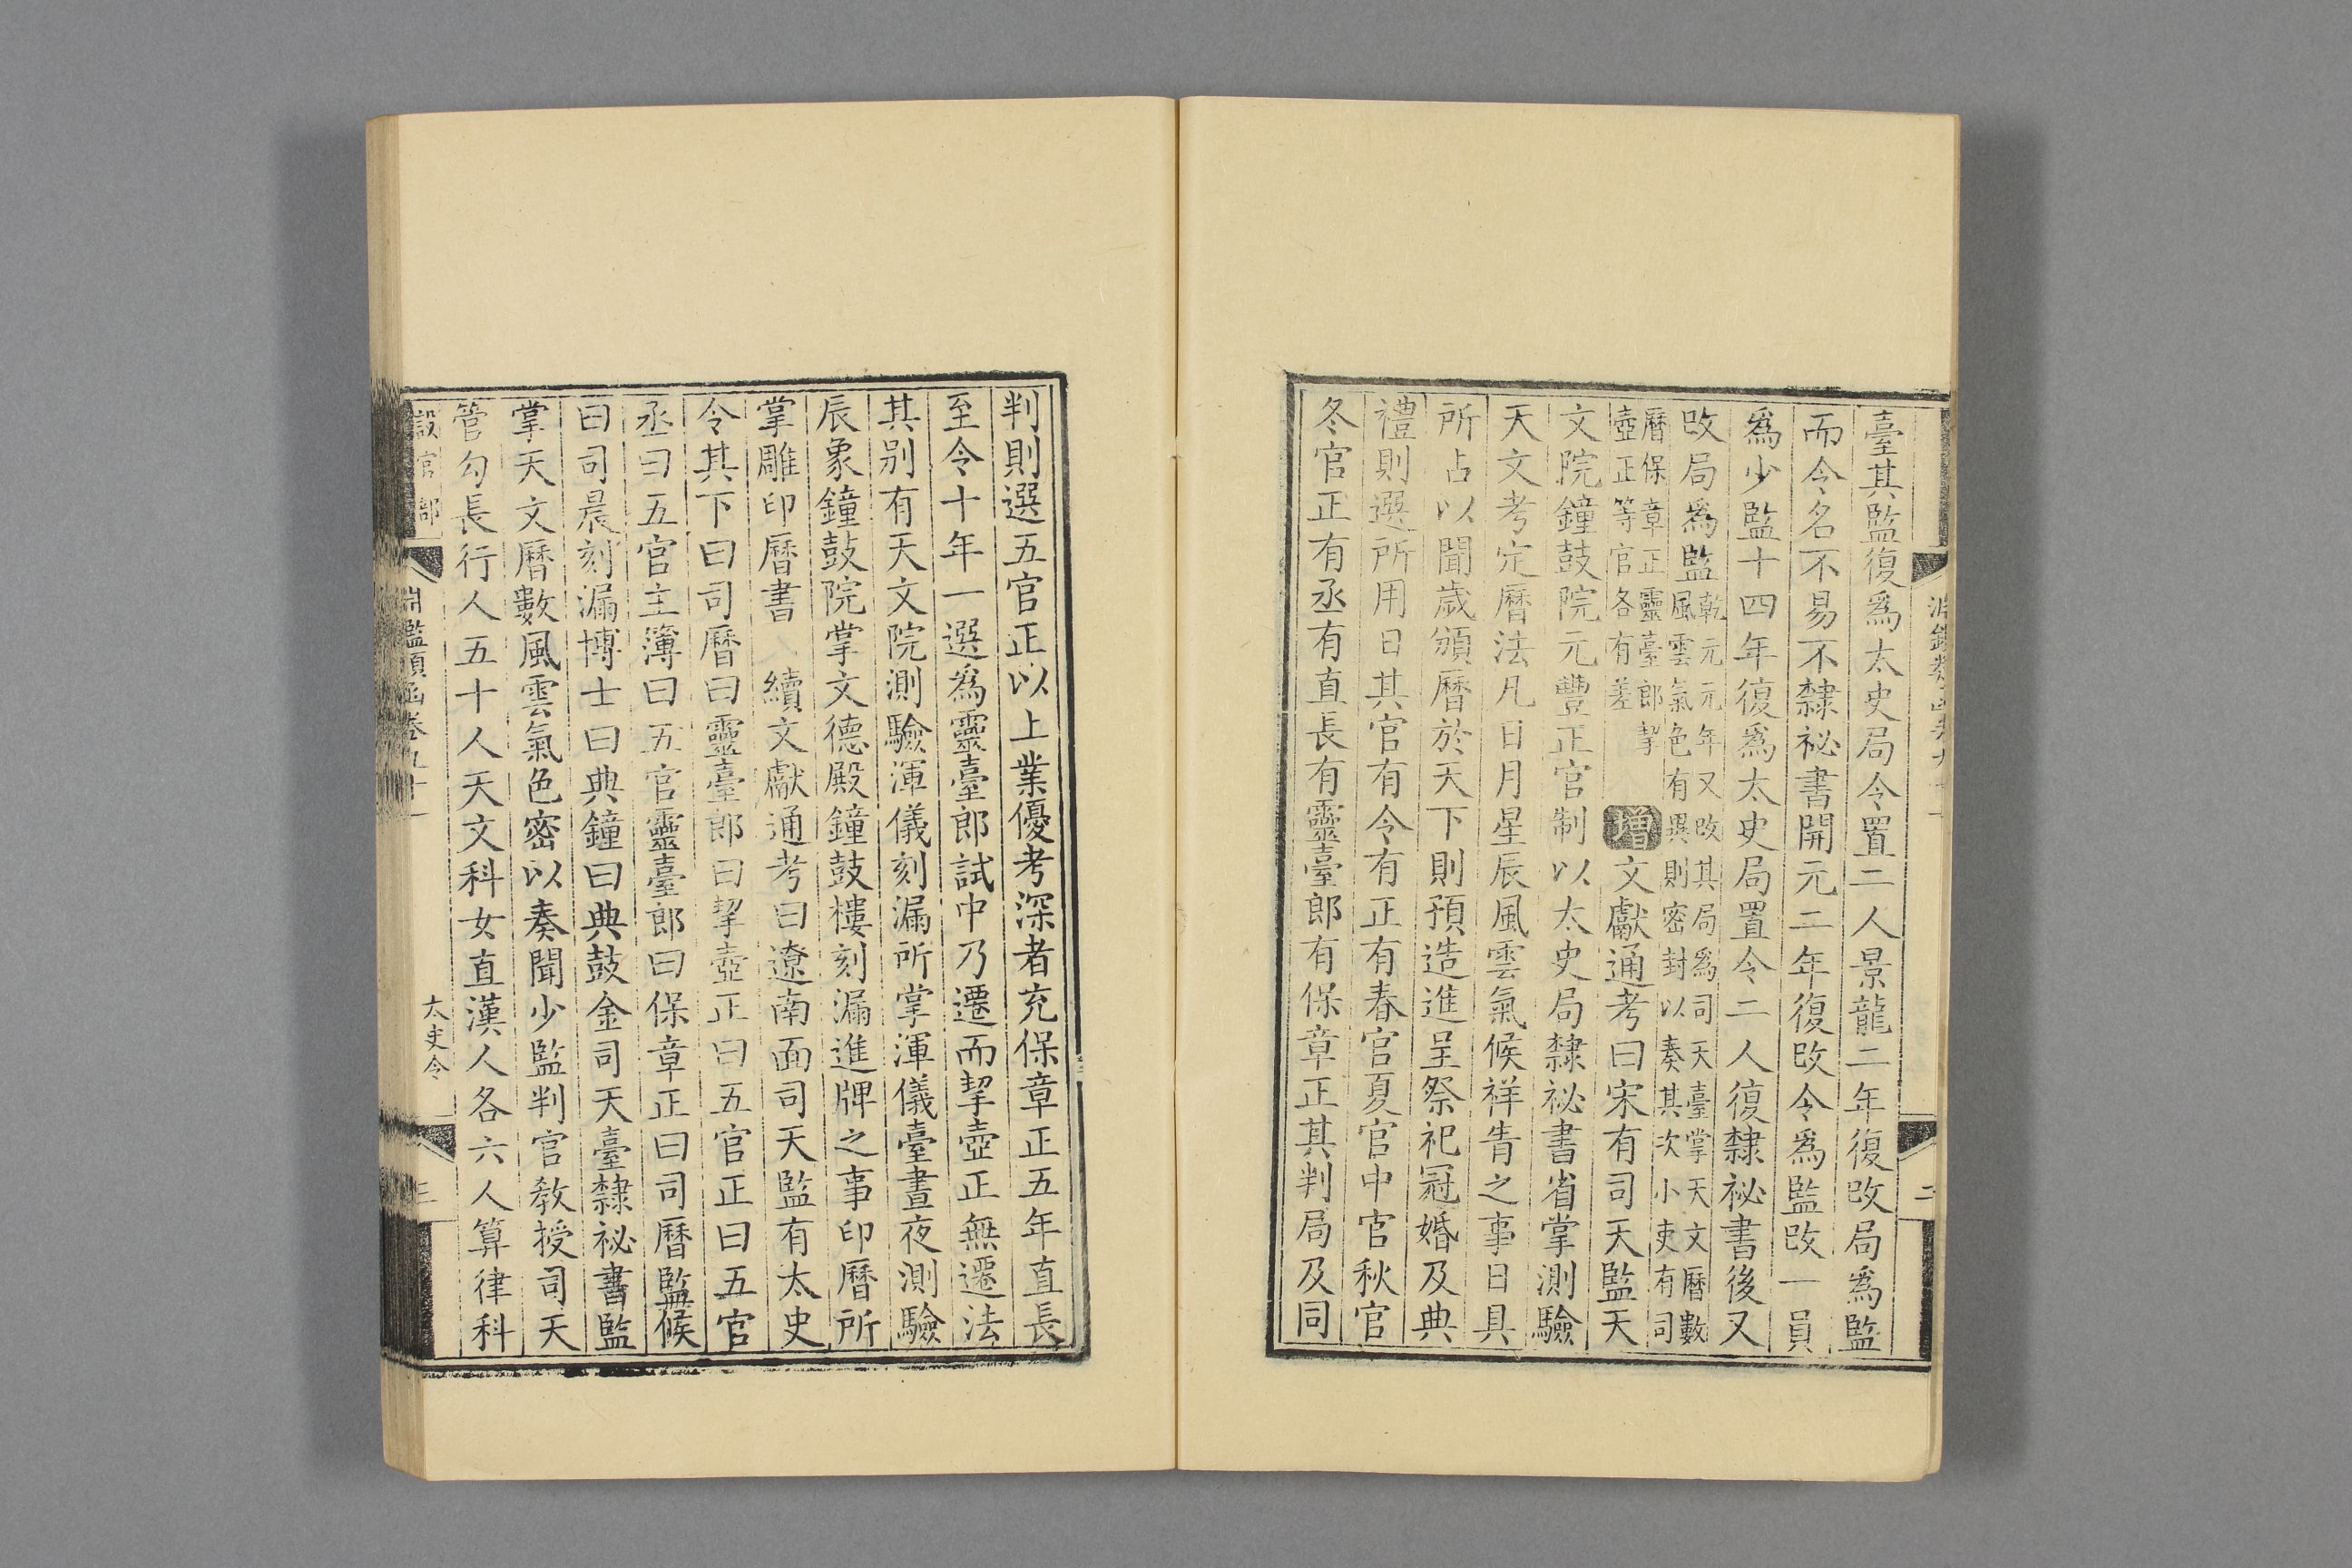 臺其監復爲太史局令置二人景龍二年復改局爲監
而令名不易不隸祕書開元二年復改令爲監改一員
爲少監十四年復爲太史局置令二人復隸祕書後又
改局爲監
乾元元年又改其局爲司天臺掌天文曆數
風雲氣色有異則密封以奏其次小吏有司
曆保章正靈臺郎挈
壺正等官各有差
增文獻通考曰宋有司天監天
文院鐘鼓院元豐正官制以太史局隸祕書省掌測驗
天文考定曆法凡日月星辰風雲氣候祥眚之事日具
所占以聞歲頒曆於天下則預造進呈祭祀冠婚及典
禮則選所用日其官有令有正有春官夏官中官秋官
冬官正有丞有直長有靈臺郎有保章正其判局及同
判則選五官正以上業優考深者充保章正五年直長
至令十年一選爲靈臺郎試中乃遷而挈壺正無遷法
其別有天文院測驗渾儀刻漏所掌渾儀臺晝夜測驗
辰象鐘鼓院掌文德殿鐘鼓樓刻漏進牌之事印曆所
掌雕印曆書 續文獻通考曰遼南面司天監有太史
令其下曰司曆曰靈臺郎曰挈壺正曰五官正曰五官
丞曰五官主簿曰五官靈臺郎曰保章正曰司曆監候
曰司晨刻漏博士曰典鐘曰典鼓金司天臺隸祕書監
掌天文曆數風雲氣色密以奏聞少監判官教授司天
管勾長行人五十人天文科女直漢人各六人算律科
設官部
淵鑑類函卷九十
太史令
三